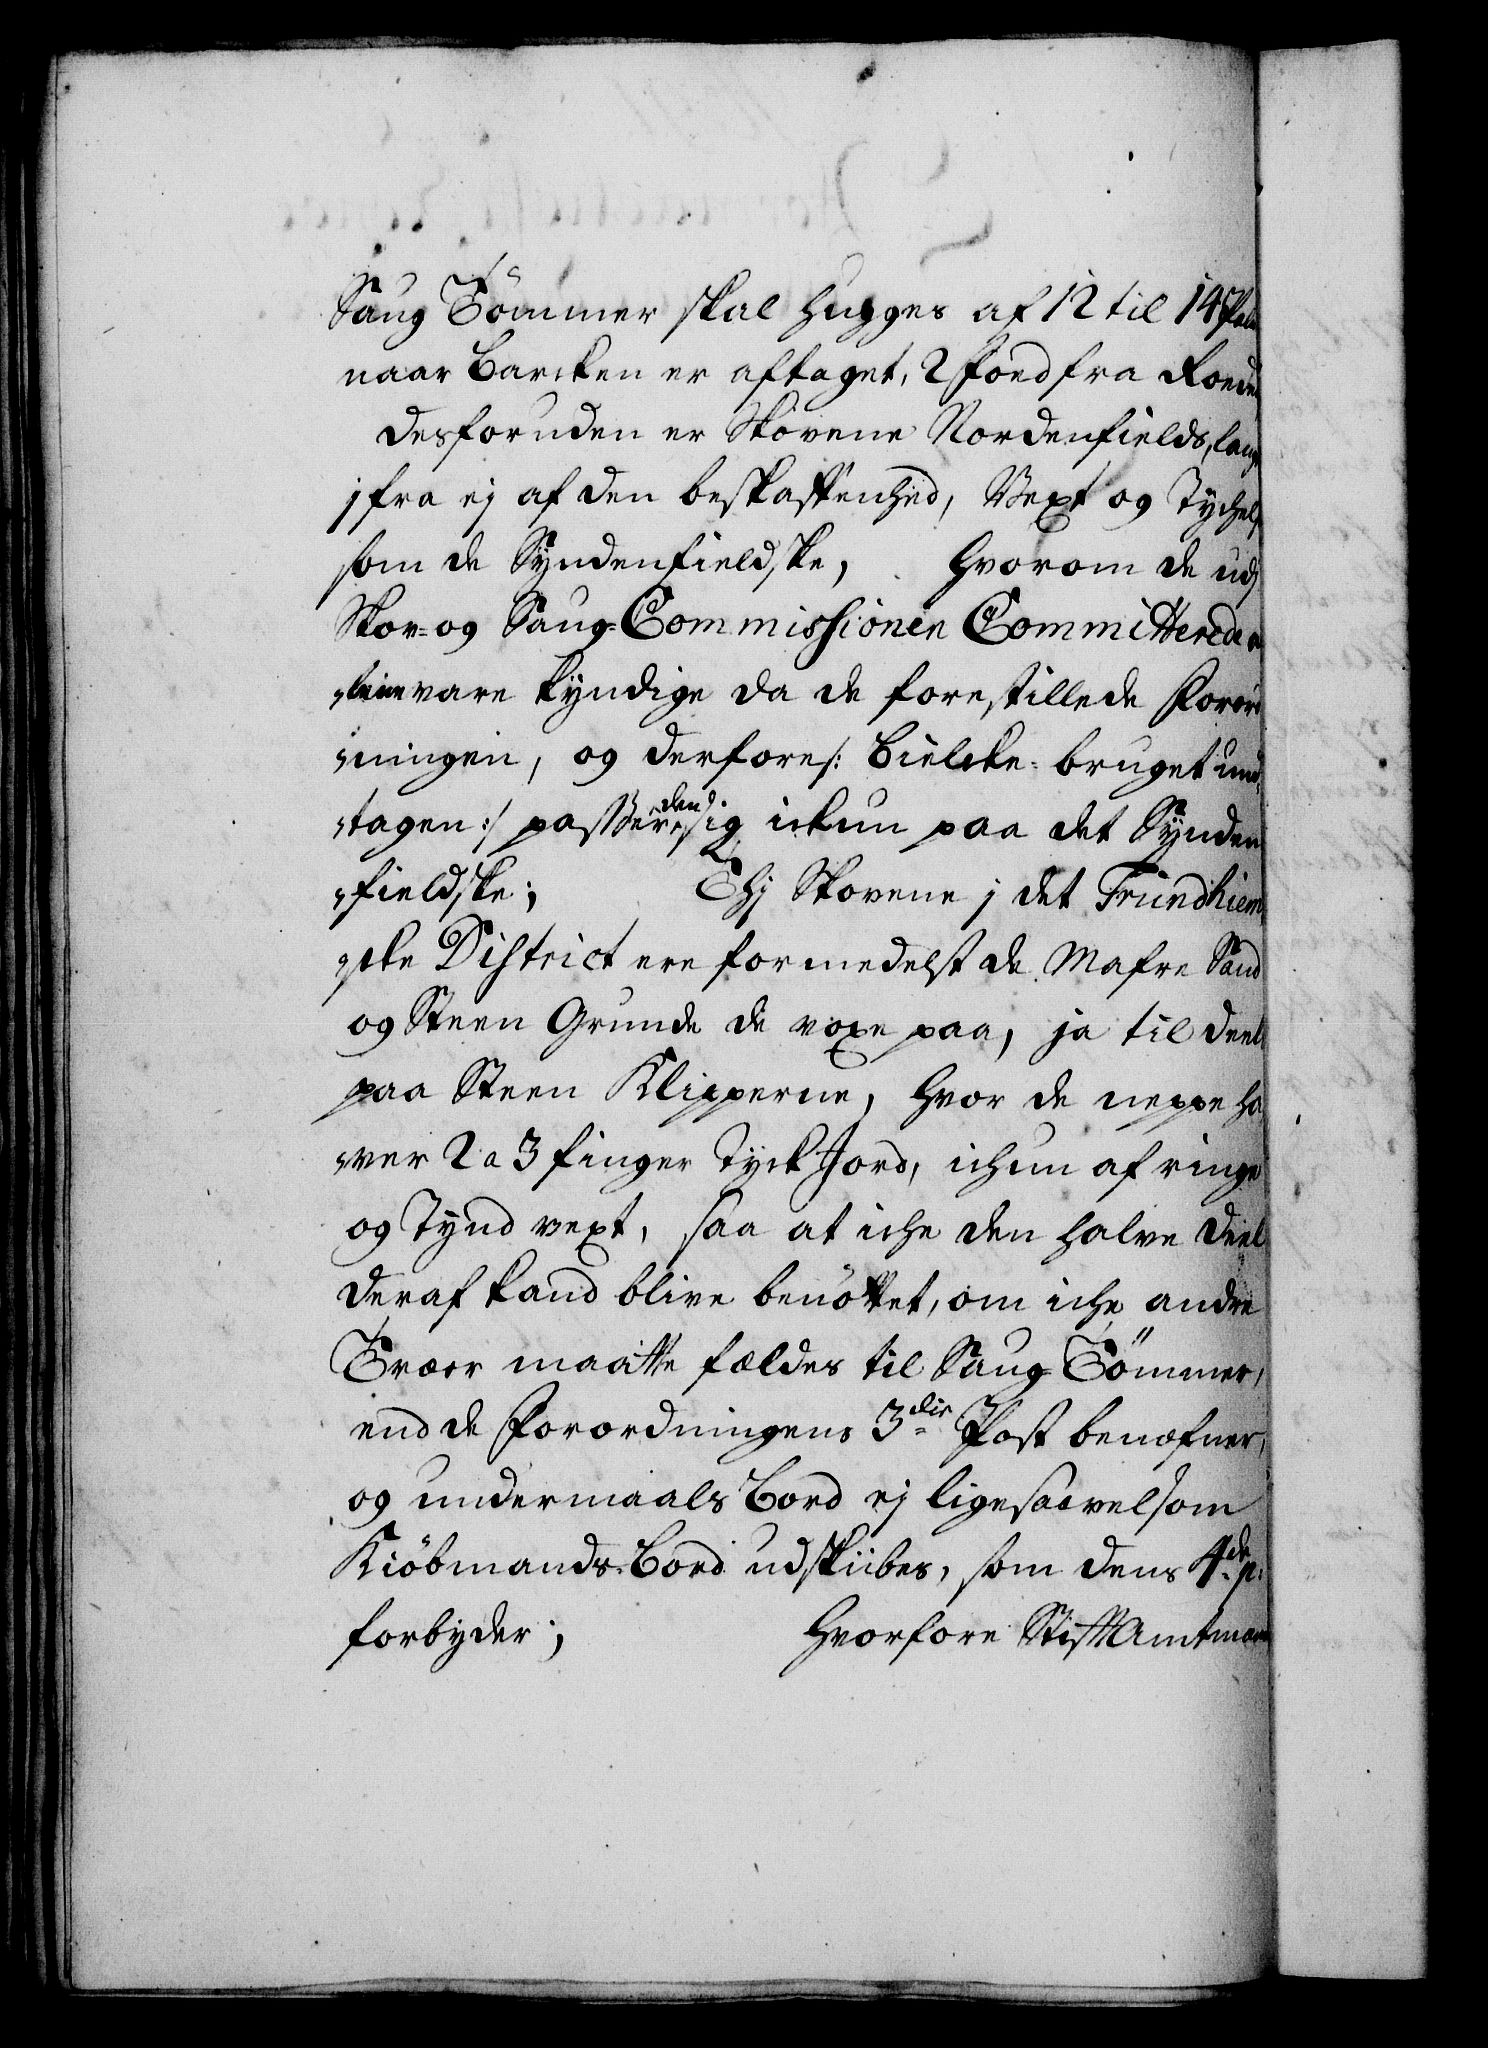 Saug Tömmer skal hugges af 12 til 14 Palm
naar Barcken er aftaget, 2 Foed fra Roeden
desforuden er Skovene Nordenfields, lang
j fra ej af den beskaffenhed, Vext og Tyckels
som de Syndenfieldske, hvorom de udj
Skov- og Saug-Commissionen Committerede
vare kyndige da de forestillede Forord
ningen, og derfore /: Bielcke-bruget und
tagen :/ passer den sig ickun paa det Synden
fieldske; Thj Skovene j det Trundhiem
ske District ere formedelst de Mafre Sand
og Steen Grunde de voxe paa, ja til deels
paa Steen Klipperne, hvor de neppe ha
ver 2 a 3 finger Tyck Jord, ickun af ringe
og Tynd vext, saa at icke den halve Deel
deraf kand blive benöttet, om icke andre
Træer maatte fældes til Saug Tömmer,
end de Forordningens 3die Post benæfner,
og undermaals Bord ej ligesaavelsom
Kiöbmands-Bord udskibes, som dens 4de p:
forbyder; Hvorfore StiftAmtmand